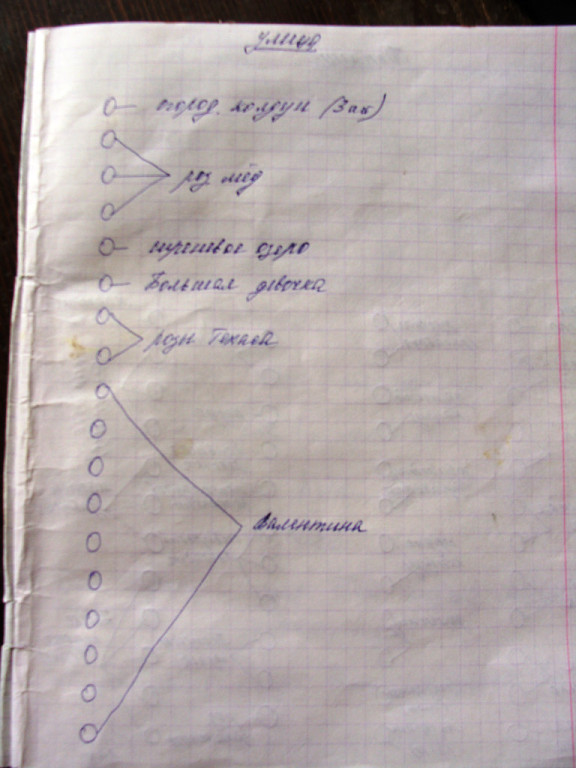 улица
огород. колдун (Зак)
роз мёд
сиреневое озеро
Большая девочка
розы Техаса
Валентина